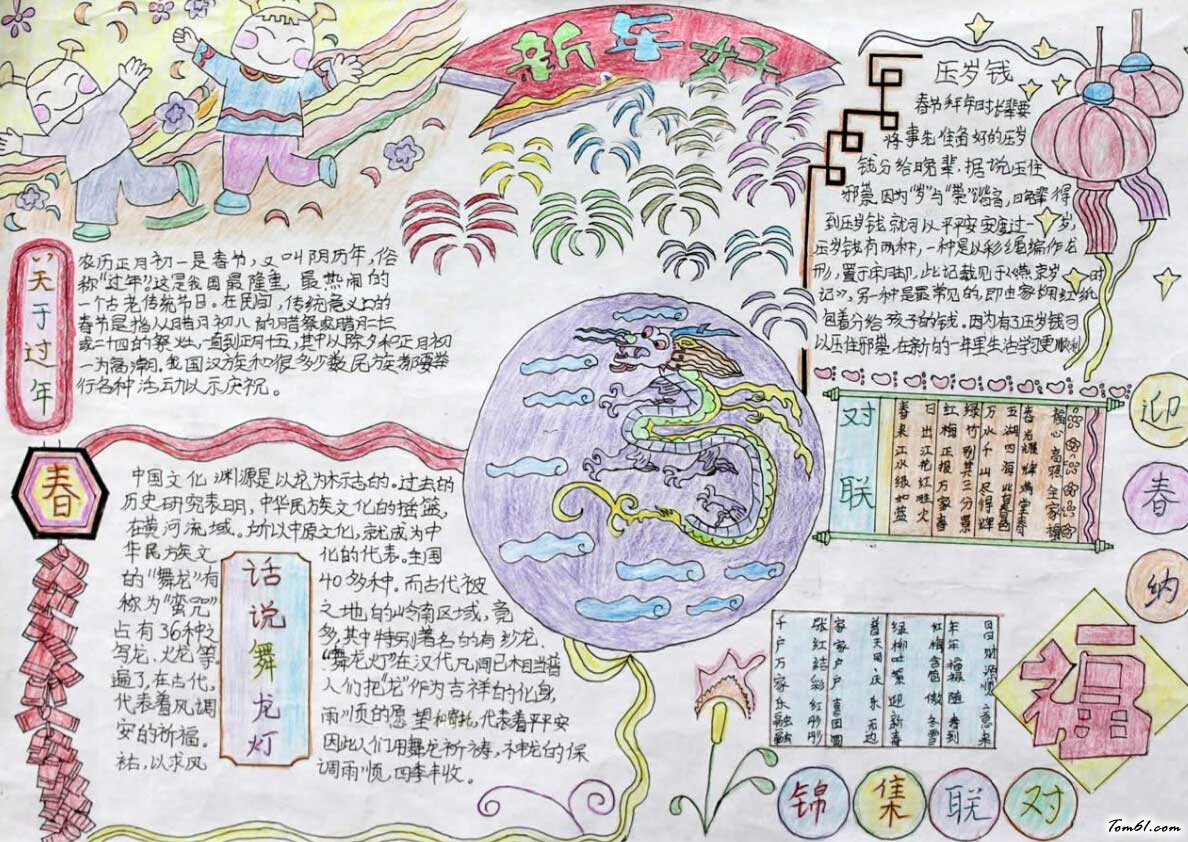 新年好
关于过年
农历正月初一是春节，又叫阴历年，俗
称“过年”这是我国最隆重，最热闹的
一个古老传统节日。在民间，传统意义上的
春节是指从腊月初八的腊祭或腊月二十三
或二十四的祭灶，一直到正月十五，其中以除夕和正月初
一为高潮。我国汉族和很多少数民族都要举
行各种活动以示庆祝。
压岁钱
春节拜年时长辈要
将事先准备好的压岁
钱分给晚辈，据说压住
邪祟因为“岁”与“祟”谐音，晚辈得
到压岁钱就可以平平安安度过一岁，
压岁钱有两种，一种是以彩绳编作龙
形，置于床脚，此记载见于《燕京岁时
记》，另一种是最常见的，即由家长用红纸
包着分给孩子的钱。因为有了压岁钱可
以压住邪祟，在新的一年里生活学习更顺利
春
中国文化渊源是以龙为标志的。过去的
历史研究表明，中华民族文化的摇篮，
在黄河流域。所以中原文化，就成为中
华民族文化的代表。全国
的“舞龙”有40多种。而古代被
称为“蛮咒之地的岭南区域，竟
占有36种之多，其中特别著名的有纱龙、
写龙、火龙等。“舞龙灯”在汉代民间已相当普
遍了，在古代，人们把“龙”作为吉祥的化身，
代表着风调雨顺的愿望和寄托，代表着平平安
安的祈福。因此人们用舞龙祈祷，神龙的保
祐，以求风调雨顺，四季丰收。
话说舞龙灯
对联
福心高照全家福
春光耀辉满堂春
五湖四海皆春色
万水千山尽得辉
绿竹别其三分景
红梅正报万家春
日出江花红胜火
春来江水绿如蓝
迎春纳福
日日财源顺意来
年年福禄随春到
红梅含苞傲冬雪
绿柳吐絮迎新春
普天同庆乐无边
家家户户喜团圆
张红结彩红彤彤
千户万家乐融融
对联集锦
Tom61.com